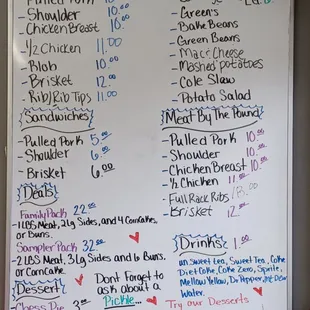 Pulled Pork 10.00
- Shoulder 10.00
- Chicken Breast 10.00
- 1/2 Chicken 11.00
- Blob 10.00
- Brisket 12.00
- Rib/Rib Tips 11.00
Sandwiches
- Pulled Pork 5.00
- Shoulder 6.00
- Brisket 6.00
Deals
Family Pack 22.00
- 1 LBS Meat, 2 lg Sides, and 4 Corncakes,
or Buns.
Sampler Pack 32.00
- 2 LBS Meat, 3 Lg Sides and 6 Buns,
or Corncake.
Dessert
Chess Pie 3.00
Dont Forget to
ask about a
Pickle...
- Green's
- Bake Beans
- Green Beans
- Mac & Cheese
- Mashed potatoes
- Cole Slaw
- Potato Salad
Meat By The Pound
- Pulled Pork 10.00
- Shoulder 10.00
- Chicken Breast 10.00
- 1/2 Chicken 11.00
- Full Rack Ribs
- Brisket 12.00
Drinks 1.00
un sweet tea, Sweet Tea, Coke
Diet Coke, Coke Zero, Sprite,
Mellow Yellow, Dr Pepper,
Water.
Try our Desserts